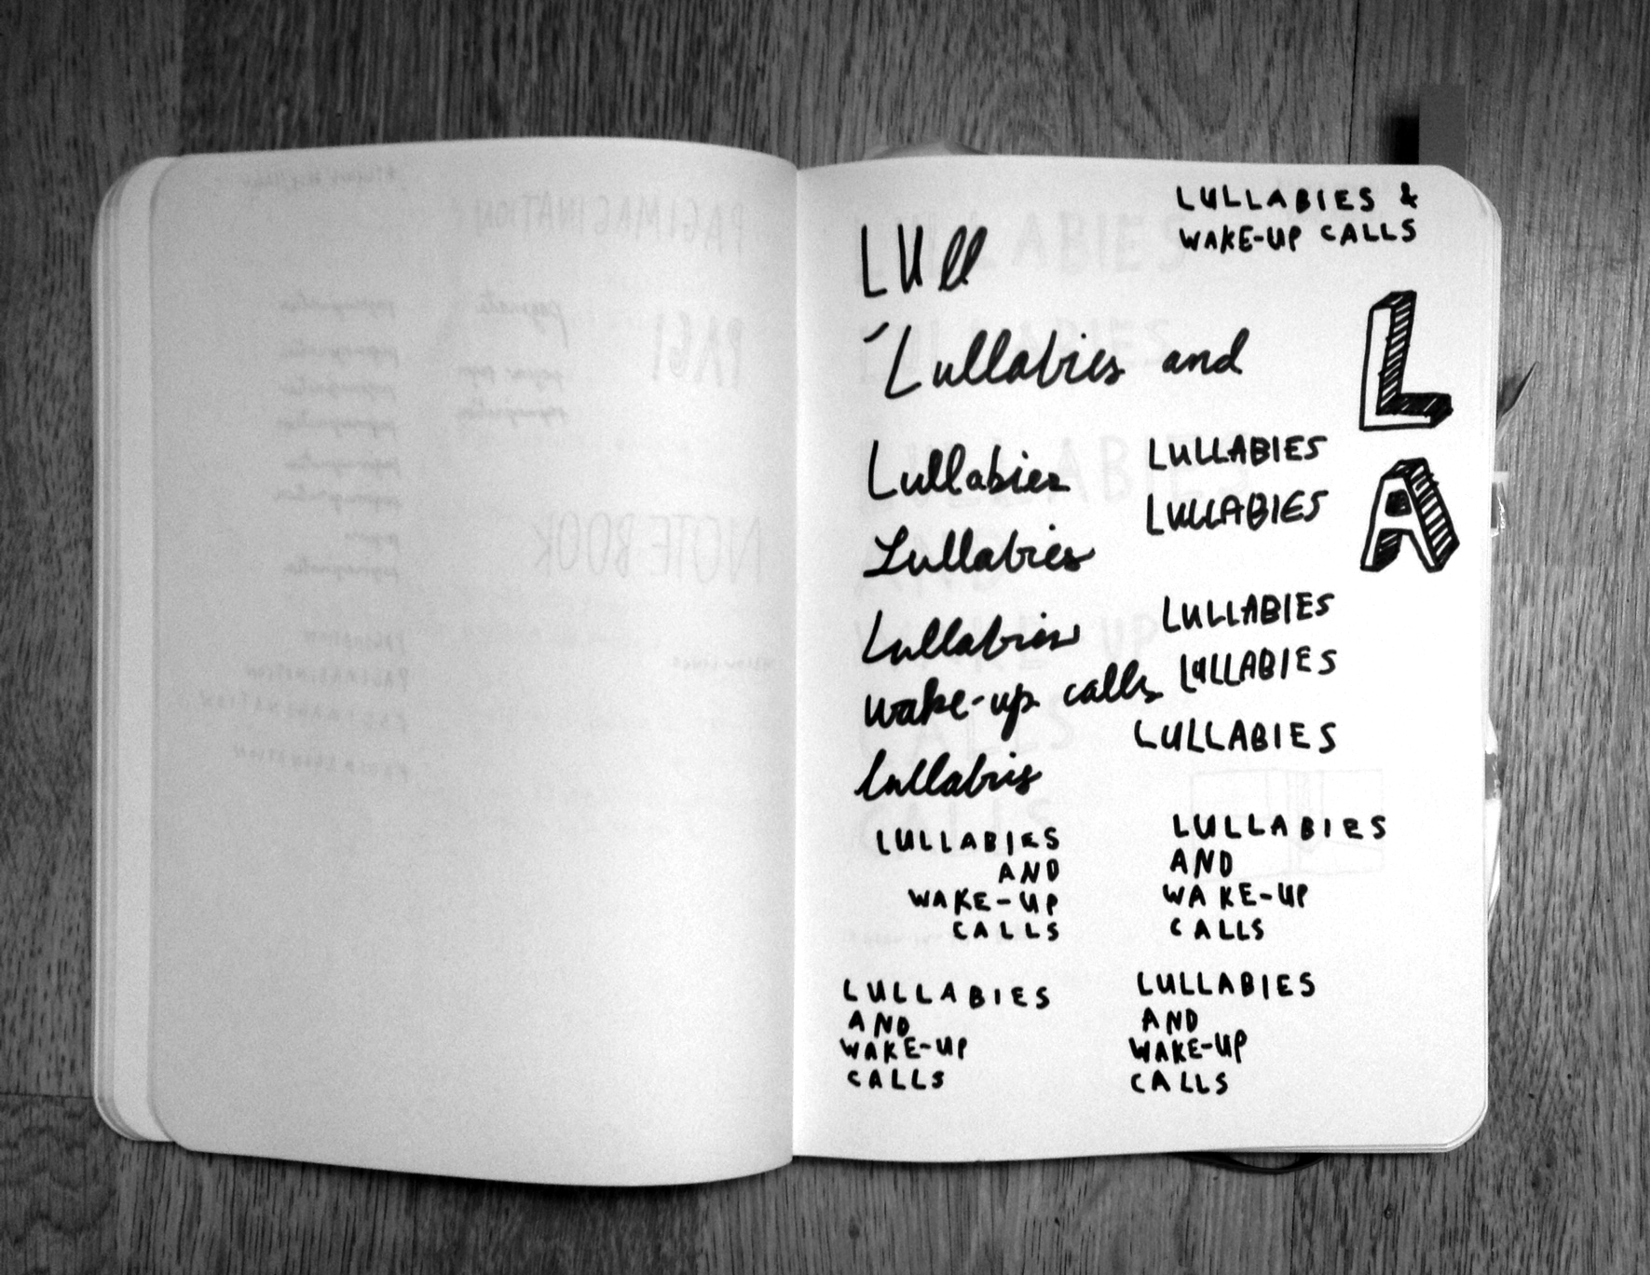 LULLABIES &
WAKE-UP CALLS
LUll
Lullabies and
L
Lullabies
LULLABIES
LULLABIES
A
Lullabies
Lullabies
LULLABIES
wake-up calls
LULLABIES
LULLABIES
Lullabies
LULLABIES
AND
WAKE-UP
CALLS
LULLABIES
AND
WAKE-UP
CALLS
LULLABIES
AND
WAKE-UP
CALLS
LULLABIES
AND
WAKE-UP
CALLS
PAGIMAGINATION
PAGI
NOTEBOOK